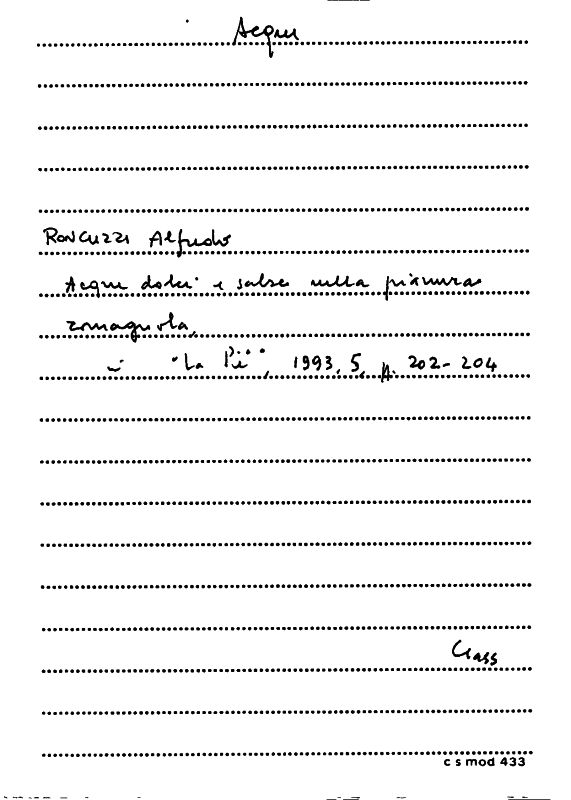 Acque
RONCUZZI Alfredo
Acque dolci e salse nella pianura
romagnola,
in "La Piê", 1993, 5, p. 202-204
Class
c s mod 433